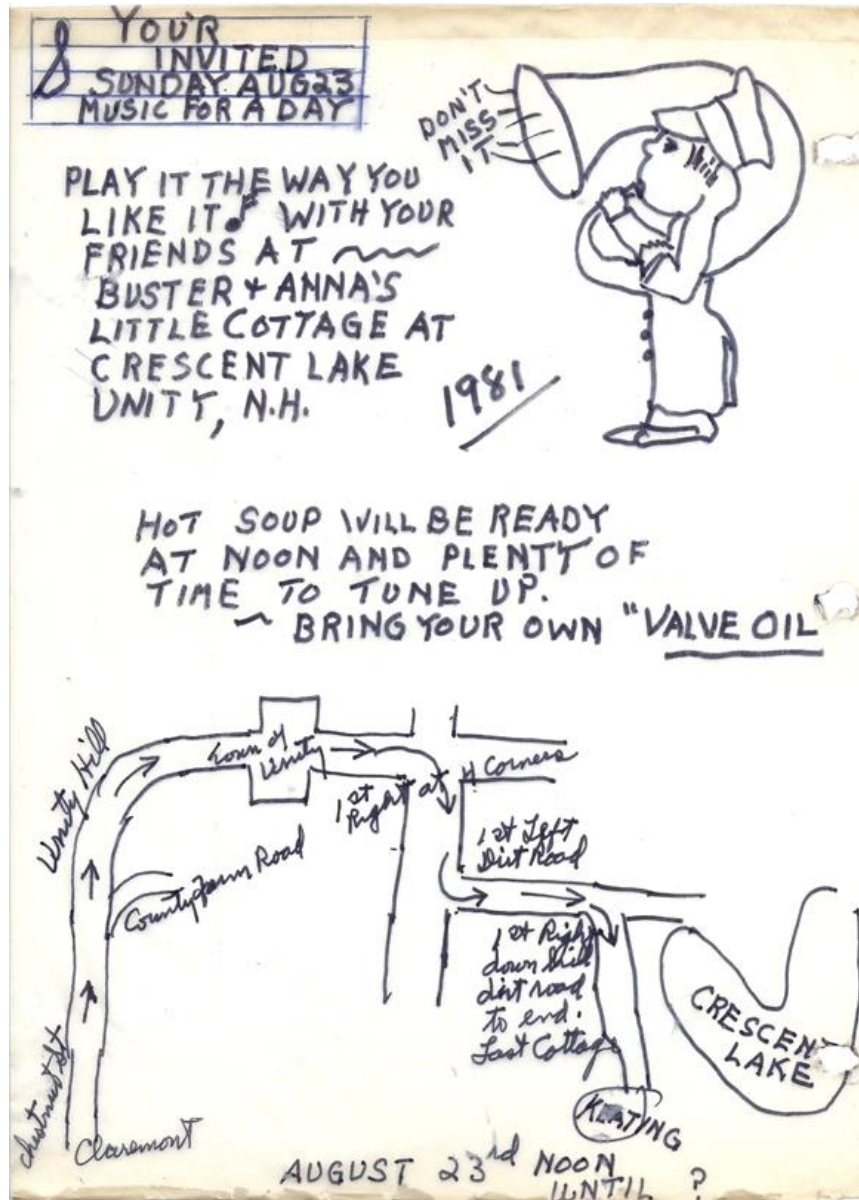 YOU'R
INVITED
SUNDAY AUG 23
MUSIC FOR A DAY
DON'T
MISS
IT
PLAY IT THE WAY YOU
LIKE IT WITH YOUR
FRIENDS AT
BUSTER + ANNA'S
LITTLE COTTAGE AT
CRESCENT LAKE
UNITY, N.H.
1981
HOT SOUP WILL BE READY
AT NOON AND PLENTY OF
TIME TO TUNE UP.
~ BRING YOUR OWN "VALVE OIL
Unity Hill
Town of
Unity
1st
Right at 4 Corners
County Farm Road
1st Left
Dirt Road
1st Right
down hill
dirt road
to end.
Last Cottage
CRESCENT
LAKE
KLATING
Chestnut St
Claremont
AUGUST 23rd NOON
UNTIL ?